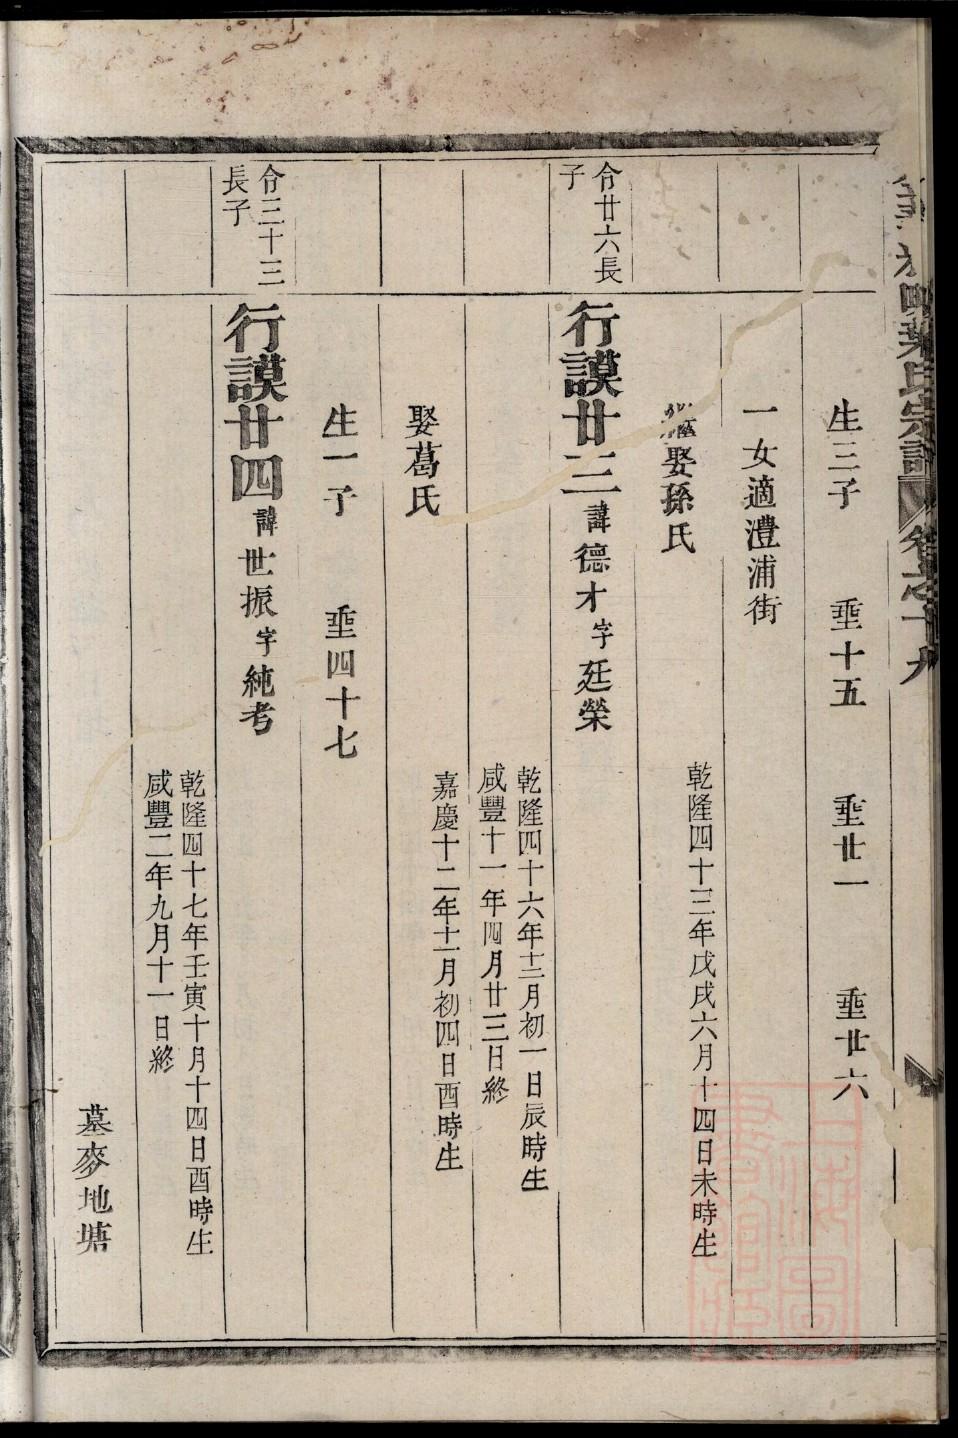 葉氏宗譜 卷之十九
生三子 垂十五 垂廿一 垂廿六
一女適澧浦街
繼娶孫氏 乾隆四十三年戊戌六月十四日未時生
令廿六長子
行謨廿三諱德才字廷榮
乾隆四十六年十二月初一日辰時生
咸豐十一年四月廿三日終
娶葛氏 嘉慶十二年十一月初四日酉時生
生一子 垂四十七
令三十三長子
行謨廿四諱世振字純考
乾隆四十七年壬寅十月十四日酉時生
咸豐二年九月十一日終
墓麥地塘
上海圖書館藏